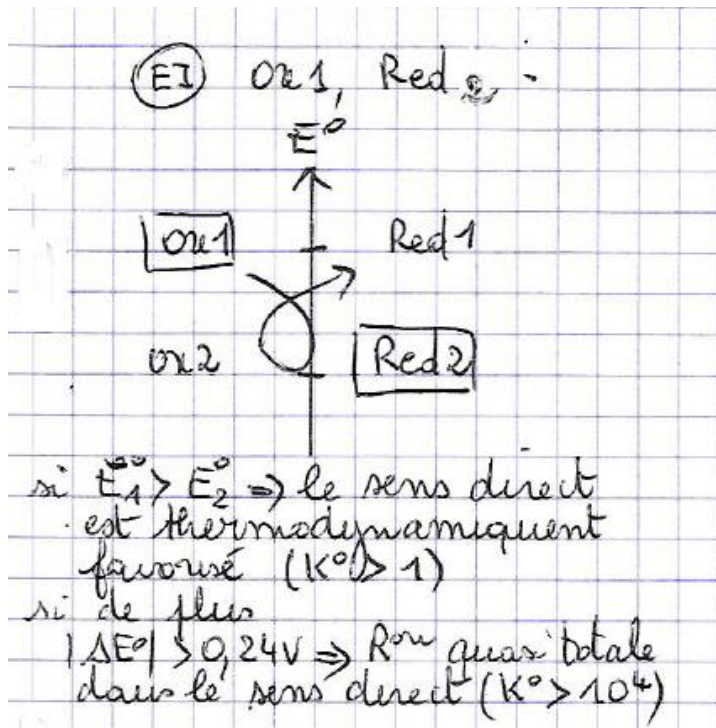 EI Ox1, Red2 :
E°
Ox1 Red1
Ox2 Red2
si E°1 > E°2 ⇒ le sens direct
est thermodynamiquent
favorisé (K° > 1)
si de plus
|ΔE°| > 0,24V ⇒ Ron quasi totale
dans le sens direct (K° > 10⁴)